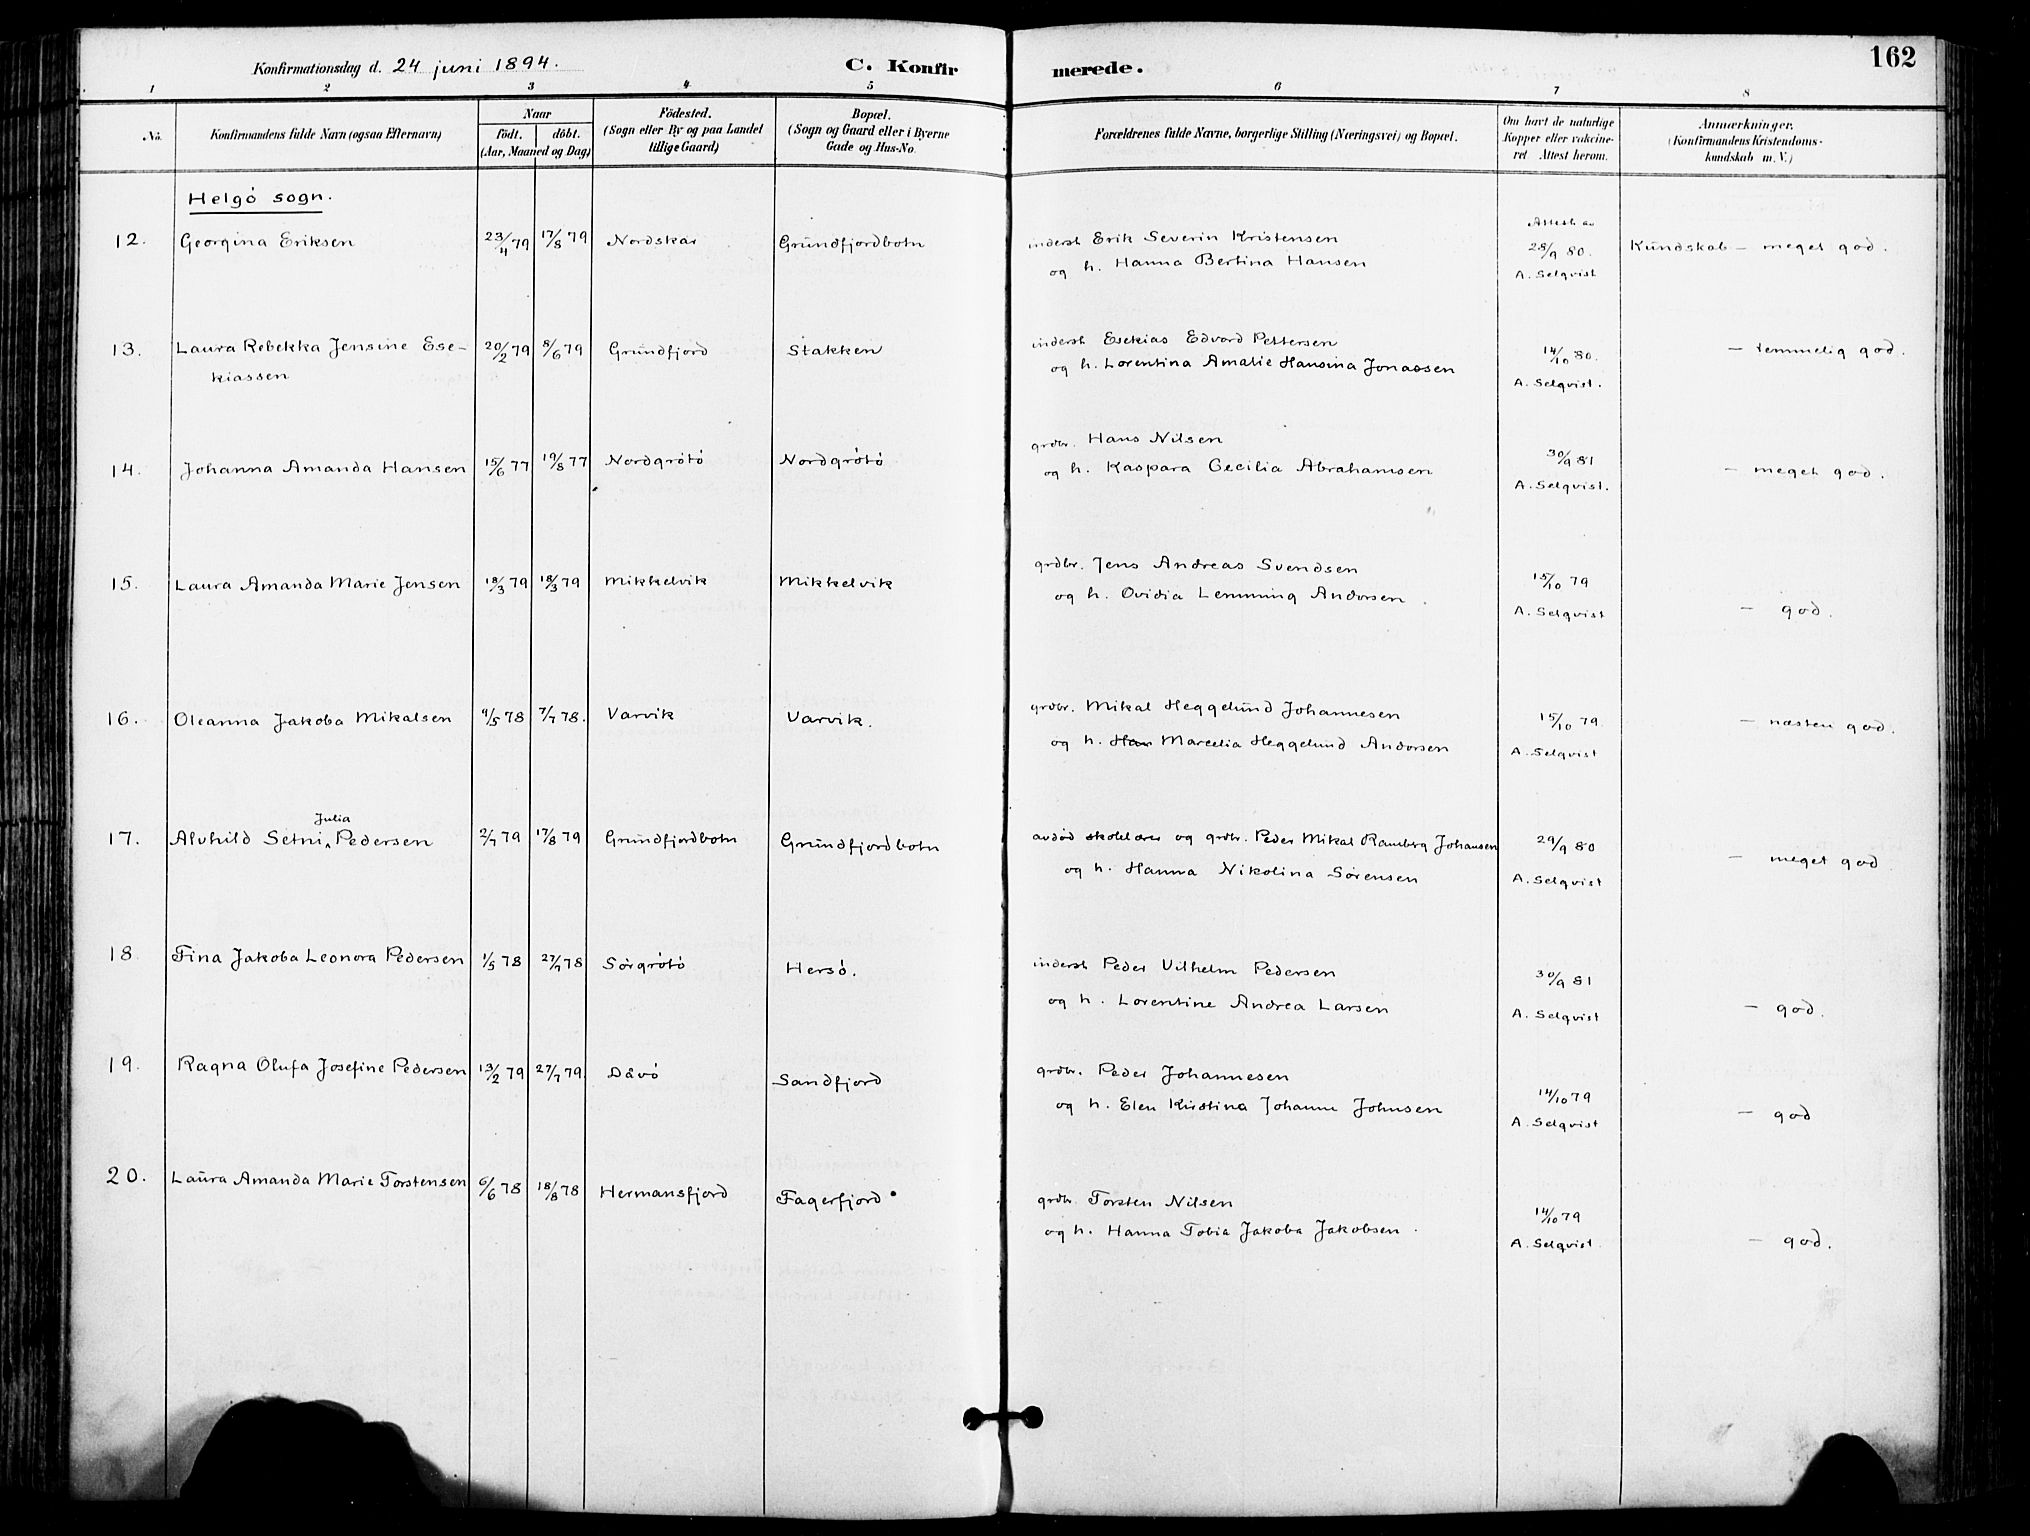 162
Konfirmationsdag d. 24 juni 1894. C. Konfirmerede.
1 2 3 4 5 6 7 8
No. Konfirmandens fulde Navn (ogsaa Efternavn) Naar födt. döbt. (Aar, Maaned og Dag) Födested. (Sogn eller By og paa Landet tillige Gaard) Bopæl. (Sogn og Gaard eller i Byerne Gade og Hus-No. Forældrenes fulde Navne, borgerlige Stilling (Næringsvei) og Bopæl. Om havt de naturlige Kopper eller vakcineret Attest herom. Anmærkninger. (Konfirmandens Kristendomskundskab m. V.)
Helgö sogn.
12. Georgina Eriksen 23/4 79 17/8 79 Nordskar Grundfjordbotn inderst Erik Severin Kristensen Attest av 28/9 80. Kundskab – meget god.
og h. Hanna Bertina Hansen A. Selqvist
13. Laura Rebekka Jensine Ese- 20/2 79 8/6 79 Grundfjord Stakken inderst Esekias Edvard Pettersen 14/10 80. – temmelig god.
kiassen og h. Lorentina Amalie Hansina Jonassen A. Selqvist.
14. Johanna Amanda Hansen 15/6 77 19/8 77 Nordgrötö Nordgrötö grdbr. Hans Nilsen 30/9 81 – meget god.
og h. Kaspara Cecilia Abrahamsen A. Selqvist.
15. Laura Amanda Marie Jensen 18/3 79 18/3 79 Mikkelvik Mikkelvik grdbr. Jens Andreas Svendsen 15/10 79
og h. Ovidia Lemming Andorsen A. Selqvist – god.
16. Oleanna Jakoba Mikalsen 4/5 78 7/7 78. Varvik Varvik. grdbr. Mikal Heggelund Johannesen 15/10 79. – næsten god.
og h. Han Marcelia Heggelund Andorsen A. Selqvist
Julia
17. Alvhild Setni Pedersen 2/7 79 17/8 79 Grundfjordbotn Grundfjordbotn avdöd skolelærer og grdbr. Peder Mikal Ramberg Johansen 29/9 80 – meget god
og h. Hanna Nikolina Sörensen A. Selqvist
18. Fina Jakoba Leonora Pedersen 1/5 78 27/7 78 Sörgrötö Hersö. inderst Peder Vilhelm Pedersen 30/9 81
og h. Lorentine Andrea Larsen A. Selqvist – god.
19. Ragna Olufa Josefine Pedersen 13/2 79 27/7 79. Dåvö Sandfjord grdbr. Peder Johannesen 14/10 79
og h. Elen Kristina Johanne Johnsen A. Selqvist – god
20. Laura Amanda Marie Torstensen 6/6 78 18/8 78 Hermansfjord Fagerfjord grdbr. Torsten Nilsen 14/10 79
og h. Hanna Tobia Jakoba Jakobsen. A. Selqvist. – god.